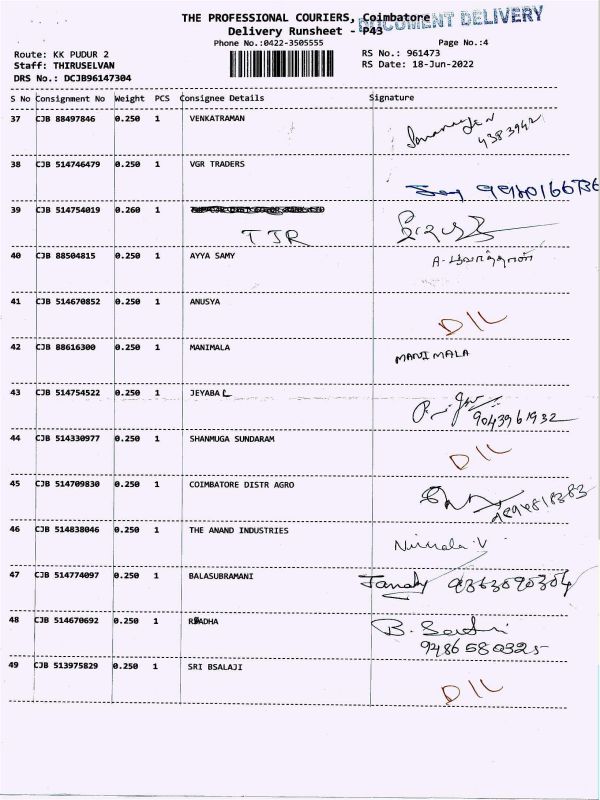 THE PROFESSIONAL COURIERS, Coimbatore
DOCUMENT DELIVERY
Delivery Runsheet - P43
Phone No.:0422-3505555
Page No.:4
Route: KK PUDUR 2
RS No.: 961473
Staff: THIRUSELVAN
RS Date: 18-Jun-2022
DRS No.: DCJB96147304
S No Consignment No Weight PCS Consignee Details Signature
37 CJB 88497846 0.250 1 VENKATRAMAN
4383942
38 CJB 514746479 0.250 1 VGR TRADERS
39 CJB 514754019 0.260 1
TJR
40 CJB 88504815 0.250 1 AYYA SAMY
41 CJB 514670852 0.250 1 ANUSYA
DIL
42 CJB 88616300 0.250 1 MANIMALA MANIMALA
43 CJB 514754522 0.250 1 JEYABAL
9043961932
44 CJB 514330977 0.250 1 SHANMUGA SUNDARAM DIL
45 CJB 514709830 0.250 1 COIMBATORE DISTR AGRO
46 CJB 514838046 0.250 1 THE ANAND INDUSTRIES
Nirmala.V
47 CJB 514774097 0.250 1 BALASUBRAMANI 9363090304
48 CJB 514670692 0.250 1 RADHA B.
9486580325
49 CJB 513975829 0.250 1 SRI BSALAJI
DIL